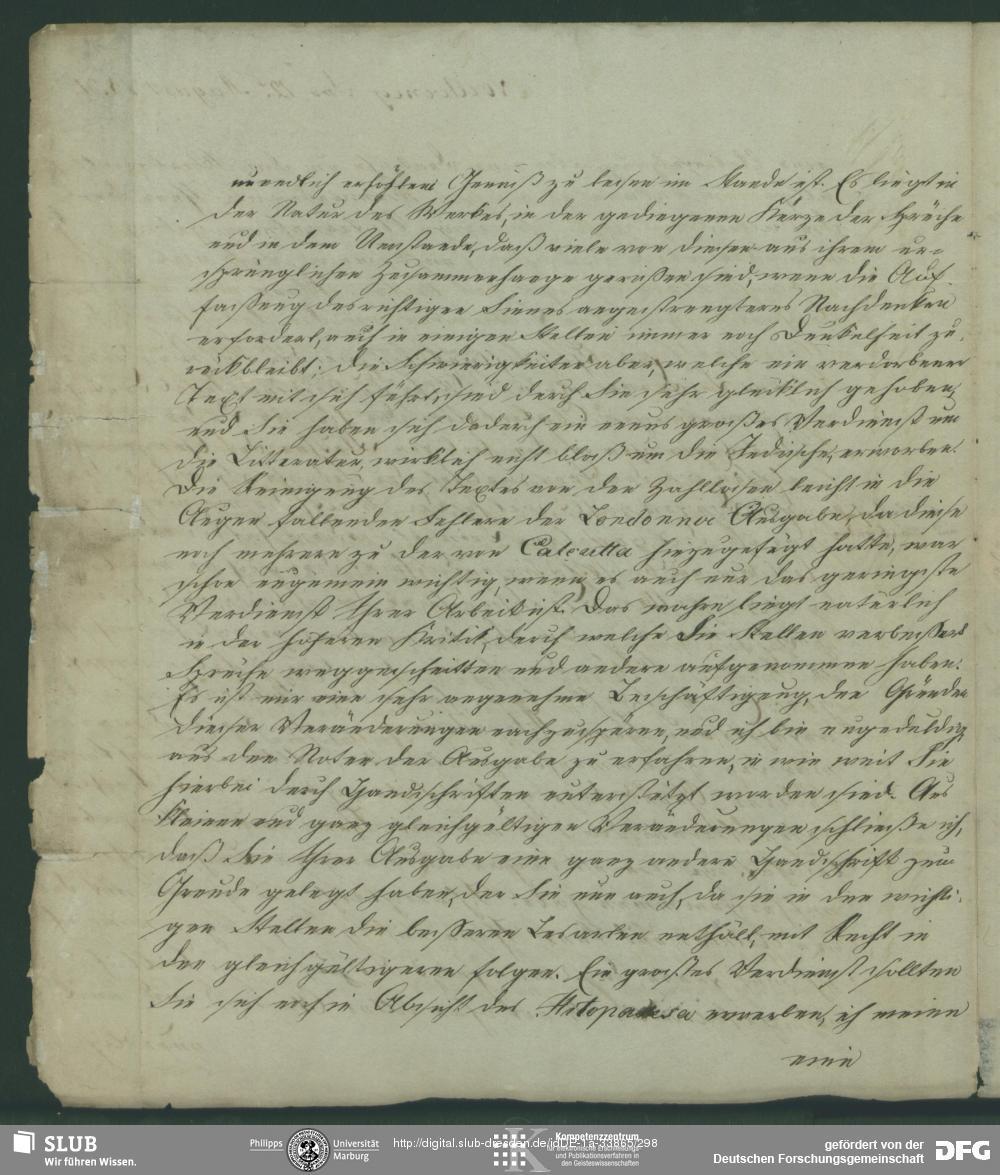 unendlich erhöhtem Genuß zu lesen im Stande ist. Es liegt in
der Natur des Werkes, in der gediegenen Kürze der Sprüche
und in dem Umstande, daß viele von diesen aus ihrem ur-
sprünglichen Zusammenhange gerissen sind, wenn die Auf-
fassung des richtigen Sinnes angestrengteres Nachdenken
erfordert, auch in einigen Stellen immer noch Dunkelheit zu-
rückbleibt; die Schwierigkeiten aber, welche ein verdorbener
Text mit sich führt, sind durch Sie sehr glücklich gehoben,
und Sie haben sich dadurch ein neues großes Verdienst um
die Litteratur, wirklich nicht bloß um die Indische, erworben.
Die Reinigung des Textes von den zahllosen leicht in die
Augen fallenden Fehlern der Londonner Ausgabe, da diese
noch mehrere zu der von Calcutta hinzugefügt hatte, war
schon ungemein wichtig, wenn es auch nur das geringste
Verdienst Ihrer Arbeit ist. Das wahre liegt natürlich
in der höheren Kritik, durch welche Sie Stellen verbessert
Sprüche weggeschnitten und andere aufgenommen haben.
Es ist mir eine sehr angenehme Beschäftigung, den Gründen
dieser Veränderungen nachzuspüren, und ich bin ungeduldig,
aus den Noten der Ausgabe zu erfahren, in wie weit Sie
hierbei durch Handschriften unterstützt worden sind. Aus
kleinen und ganz gleichgültigen Veränderungen schließe ich,
daß Sie Ihrer Ausgabe eine ganz andere Handschrift zum
Grunde gelegt haben, der Sie nun auch, da sie in den wichti-
gen Stellen die besseren Lesarten enthält, mit Recht in
den gleichgültigeren folgen. Ein großes Verdienst sollten
Sie sich noch in Absicht des Hitopadesa erwerben, ich meine
eine
SLUB
Wir führen Wissen.
Philipps Universität Marburg
http://digital.slub-dresden.de/idDE-1a-33865/298
Kompetenzzentrum
für elektronische Erschließungs-
und Publikationsverfahren in
den Geisteswissenschaften
gefördert von der
Deutschen Forschungsgemeinschaft
DFG